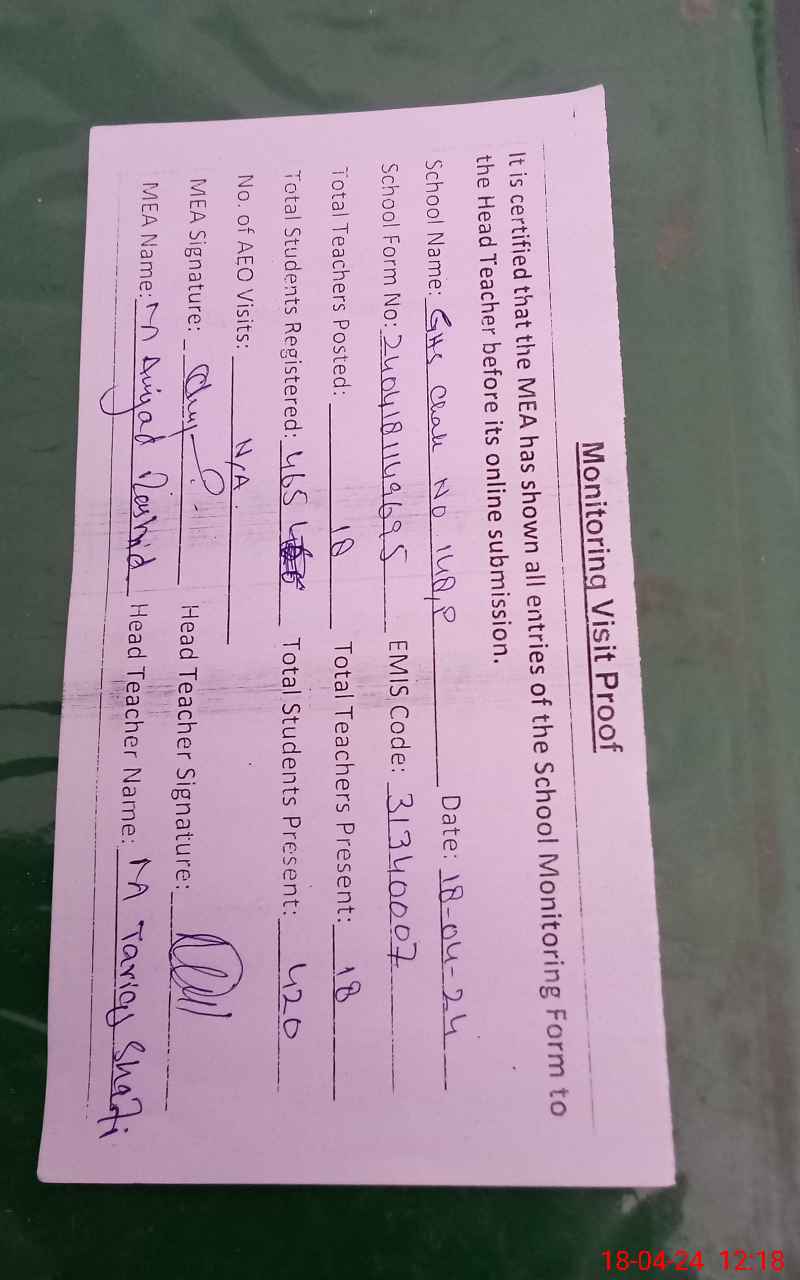 Monitoring Visit Proof
It is certified that the MEA has shown all entries of the School Monitoring Form to
the Head Teacher before its online submission.
School Name: GHS Chak No 148,P Date: 18-04-24
School Form No: 2404181149695 EMIS Code: 31340007
Total Teachers Posted: 18 Total Teachers Present: 18
Total Students Registered: 465 Total Students Present: 420
No. of AEO Visits: N/A.
MEA Signature: Head Teacher Signature:
MEA Name: M Rashid Head Teacher Name: M Tariq Shafi
18-04-24 12:18